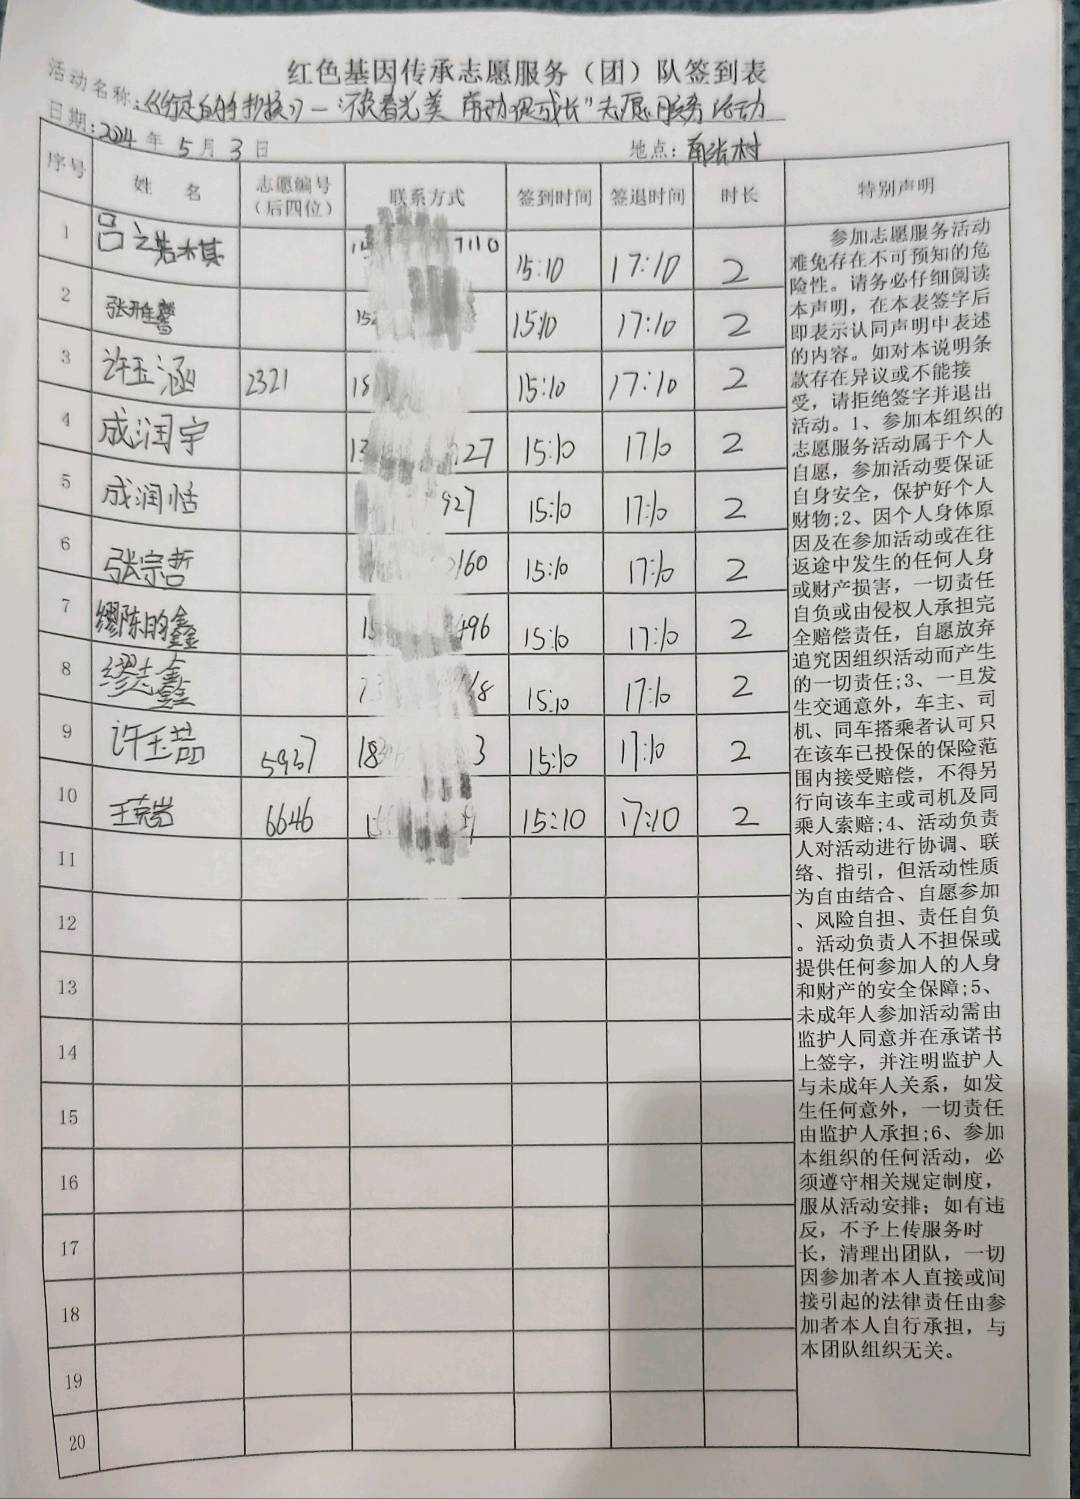 红色基因传承志愿服务（团）队签到表
活动名称：
志愿服务活动
日期：2024年5月3日 地点：村
序号 姓名 志愿编号（后四位） 联系方式 签到时间 签退时间 时长 特别声明
1 吕 7110 15:10 17:10 2
2 张雅馨 152 15:10 17:10 2
3 许玉涵 2321 15:10 17:10 2
4 成润宇 13 27 15:10 17:10 2
5 成润恬 927 15:10 17:10 2
6 张宗哲 160 15:10 17:10 2
7 缪陈昀鑫 15 496 15:10 17:10 2
8 缪志鑫 8 15:10 17:10 2
9 许玉喆 5937 18 3 15:10 17:10 2
10 王 6646 1 15:10 17:10 2
11
12
13
14
15
16
17
18
19
20
参加志愿服务活动
难免存在不可预知的危
险性。请务必仔细阅读
本声明，在本表签字后
即表示认同声明中表述
的内容。如对本说明条
款存在异议或不能接
受，请拒绝签字并退出
活动。1、参加本组织的
志愿服务活动属于个人
自愿，参加活动要保证
自身安全，保护好个人
财物;2、因个人身体原
因及在参加活动或在往
返途中发生的任何人身
或财产损害，一切责任
自负或由侵权人承担完
全赔偿责任，自愿放弃
追究因组织活动而产生
的一切责任;3、一旦发
生交通意外，车主、司
机、同车搭乘者认可只
在该车已投保的保险范
围内接受赔偿，不得另
行向该车主或司机及同
乘人索赔;4、活动负责
人对活动进行协调、联
络、指引，但活动性质
为自由结合、自愿参加
、风险自担、责任自负
。活动负责人不担保或
提供任何参加人的人身
和财产的安全保障;5、
未成年人参加活动需由
监护人同意并在承诺书
上签字，并注明监护人
与未成年人关系，如发
生任何意外，一切责任
由监护人承担;6、参加
本组织的任何活动，必
须遵守相关规定制度，
服从活动安排；如有违
反，不予上传服务时
长，清理出团队，一切
因参加者本人直接或间
接引起的法律责任由参
加者本人自行承担，与
本团队组织无关。